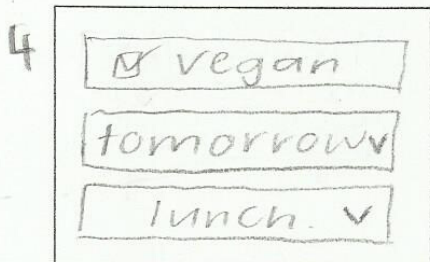 4
☑ vegan
tomorrow ∨
lunch. ∨